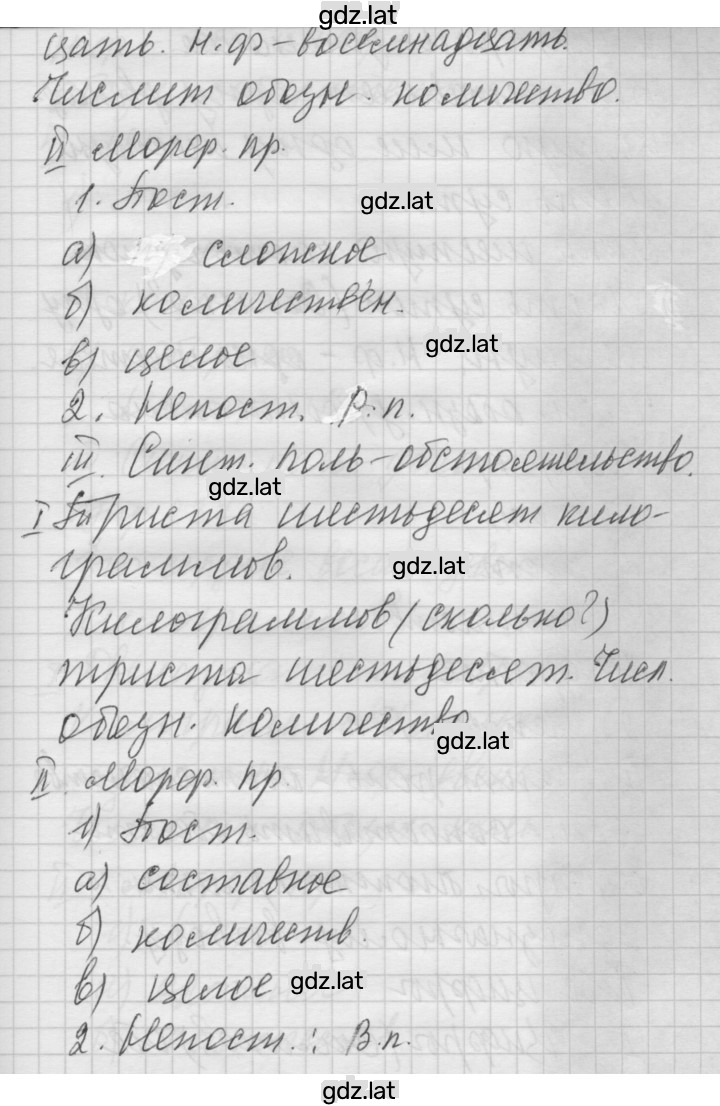 gdz.lat
цать. Н.ф – восемнадцать.
Числит обозн. количество.
II Морф. пр.
1. Пост.
gdz.lat
а) сложное
б) количествен.
gdz.lat
в) целое
2. Непост. Р.п.
III. Синт. роль – обстоятельство.
gdz.lat
I Триста шестьдесят кило-
граммов.
gdz.lat
Килограммов (сколько?)
триста шестьдесят. Числ.
обозн. количество
gdz.lat
II. Морф. пр.
1) Пост.
а) составное
б) количеств.
в) целое
gdz.lat
2. Непост.: В.п.
gdz.lat